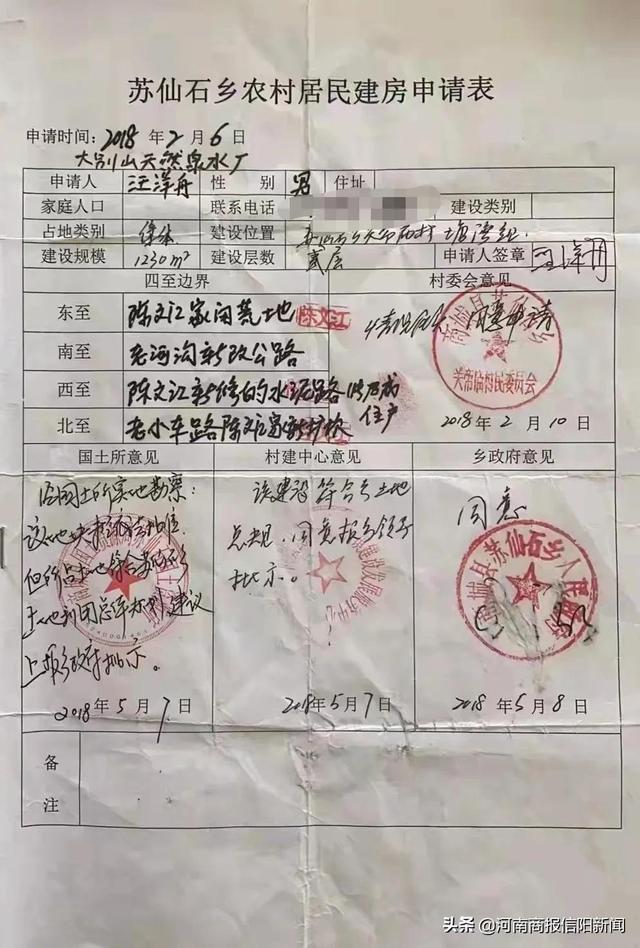 苏仙石乡农村居民建房申请表
申请时间：2018 年 2 月 6 日
大别山天然泉水厂
申请人 汪洋舟 性 别 男 住址
家庭人口 联系电话 建设类别
占地类别 集体 建设位置
建设规模 1230m² 建设层数 贰层 申请人签章 汪洋舟
四至边界 村委会意见
东至 陈文江家闲荒地 陈文江
情况属实 同意申请
南至 老河沟新改公路
关帝庙村民委员会
西至 陈文江新修的水泥路
北至 老小车路陈文江家新扩坎
2018 年 2 月 10 日
国土所意见 村建中心意见 乡政府意见
经国土所实地勘察：
该建设符合乡土地
同意
总规，同意报乡领导
批示。
商城县苏仙石乡人民政府
土地利用总体规划 建议
上报乡政府批示。
2018 年 5 月 7 日 2018 年 5 月 7 日 2018 年 5 月 8 日
备
注
头条 @河南商报信阳新闻